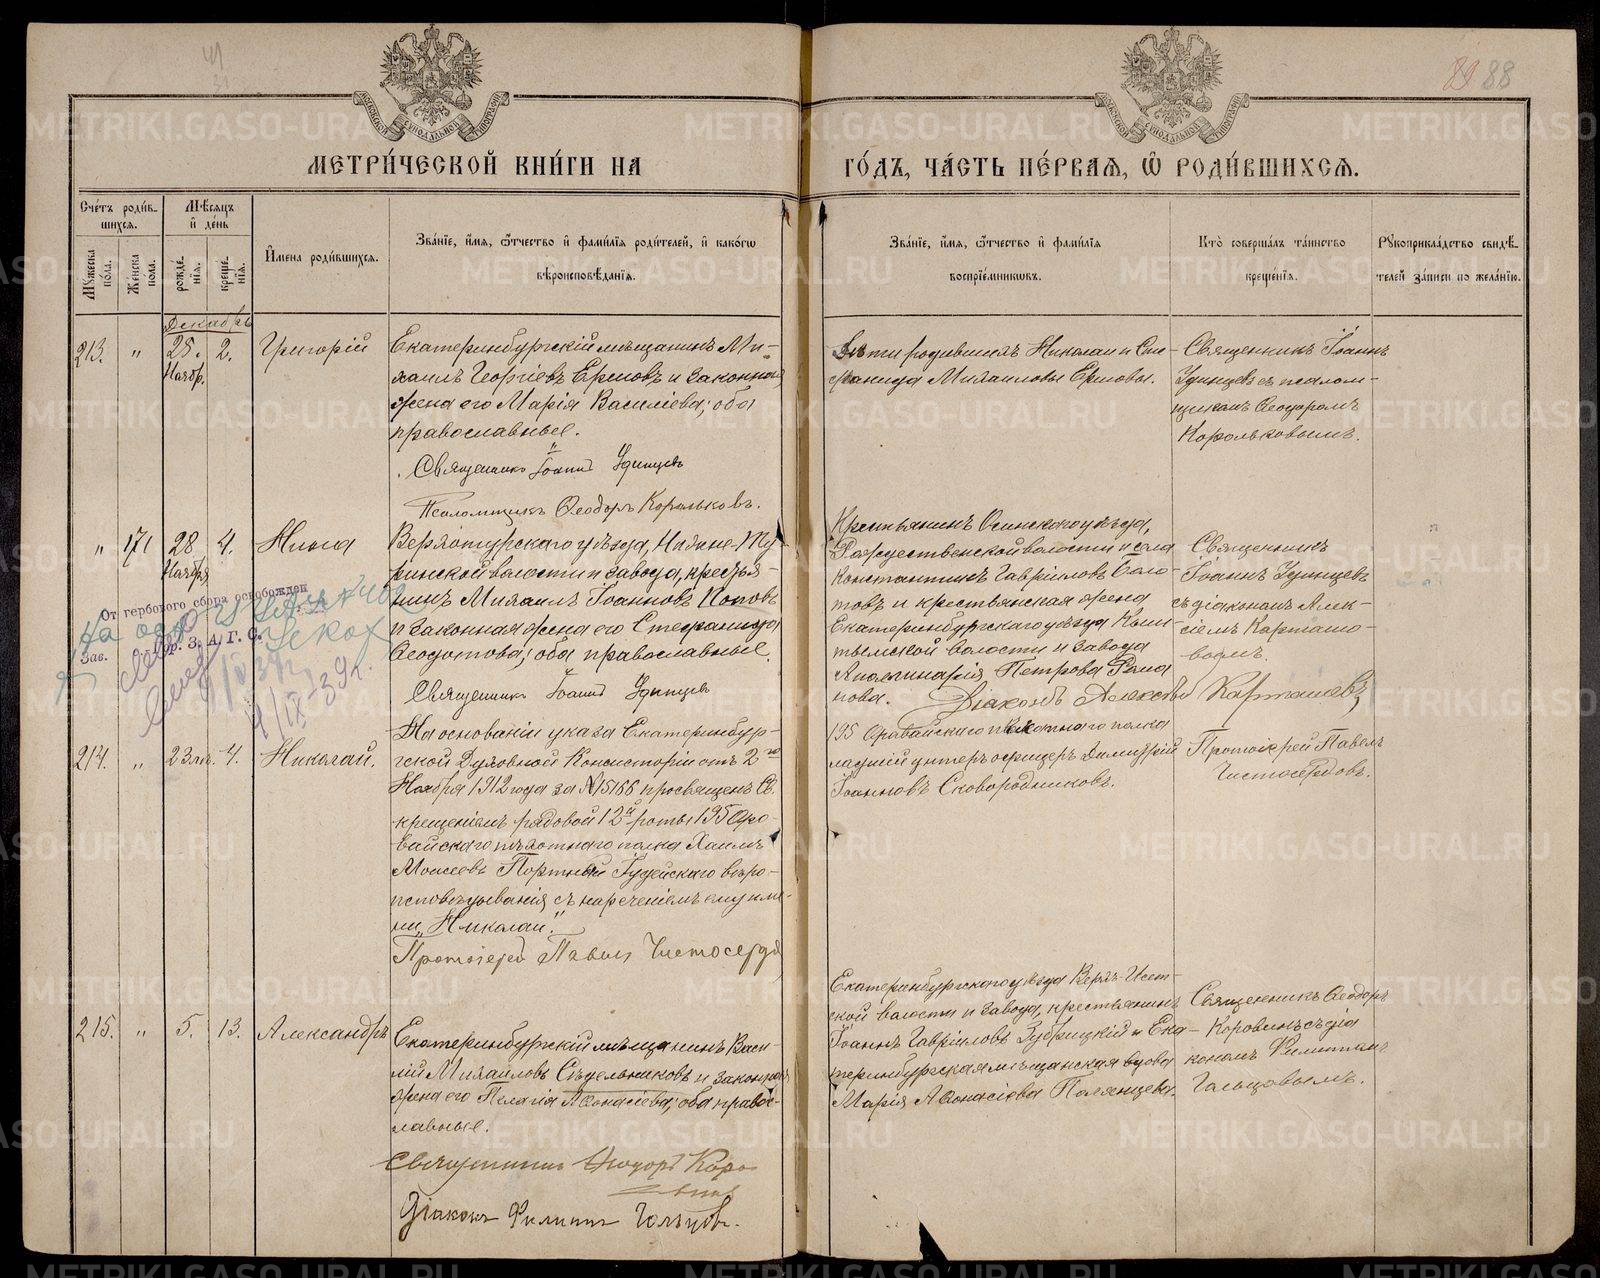 89 88
МЕТРИ́ЧЕСКОЙ КНИ́ГИ НА
ГО́ДЪ, ЧА́СТЬ ПЕ́РВАЯ, Ѡ҆ РОДИ́ВШИХСЯ.
Сче́тъ роди́в-
шихся.
Мѣ́сяцъ
и҆ де́нь
Мꙋ́жеска
пола.
Же́нска
пола.
рожде́-
нїѧ.
креще́-
нїѧ.
И҆мена роди́вшихся.
Зва́нїе, и҆́мя, ѻ҆́тчество и҆ фами́лїя роди́телей, и҆ како́гѡ
вѣроисповѣ́данїя.
Зва́нїе, и҆́мя, ѻ҆́тчество и҆ фами́лїя
воспрїе́мниковъ.
Кто̀ соверша́лъ та́инство
креще́нїя.
Рꙋкоприкла́дство свидѣ́-
телей за́писи по жела́нїю.
Декабрь
213. " 25. Ноябр. 2. Григорій
Екатеринбургскій мѣщанинъ Ми-
хаилъ Георгіевъ Ершовъ и законная
жена его Марія Василіева; оба
православные.
Священникъ Іоаннъ Удинцевъ
Псаломщикъ Ѳеодоръ Корольковъ.
родившихъ Николай и Сте-
фанида Михаиловы Ершовы.
Священникъ Іоаннъ
Удинцевъ съ псалом-
щикомъ Ѳеодоромъ
Корольковымъ.
" 171 28 Ноября 4. Нина
Верхотурскаго уѣзда, Нижне-Ту-
ринской волости и завода, крестья-
нинъ Михаилъ Іоанновъ Поповъ
и законная жена его Стефанида
Ѳеодотова; оба православные.
Священникъ Іоаннъ Удинцевъ
Крестьянинъ Осинскаго уѣзда,
Рождественской волости и села
Константинъ Гавріиловъ
и крестьянская жена
Екатеринбургскаго уѣзда Кыш-
тымской волости и завода
Аполлинарія Петрова Рома
нова.
Діаконъ Алексѣй Карташевъ
Священникъ
Іоаннъ Удинцевъ
съ діакономъ Алек-
сіемъ Карташо-
вымъ.
От гербового сбора освобожден
Зав. Р. З. А. Г. С.
4/IX-39г.
214. " 23 4. Николай.
На основаніи указа Екатеринбур-
гской Духовной Консисторіи отъ 2го
Ноября 1912 года за №15166 просвященъ Св.
крещеніемъ рядовой 12й роты 195 Оро-
вайскаго пѣхотнаго полка Хаимъ
Моисеевъ Портной Іудейскаго вѣро-
исповѣдыванія, съ нареченіемъ ему име-
ни „Николай."
Протоіерей Павелъ Чистосердо
195 Оравайскаго пѣхотнаго полка
младшій унтеръ офицеръ Димитрій
Іоанновъ Сковородниковъ.
Протоіерей Павелъ
Чистосердовъ.
215. " 5. 13. Александръ
Екатеринбургскій мѣщанинъ Васи-
лій Михайловъ Сѣдельниковъ и законная
жена его Пелагія Аѳонасіева; оба право-
славные.
Священникъ Ѳеодоръ Коро
винъ
Діаконъ Филиппъ Гольцовъ.
Екатеринбургскаго уѣзда Верхъ-Исет-
ской волости и завода, крестьянинъ
Іоаннъ Гавріиловъ Зубрицкій и Ека-
теринбургская мѣщанская вдова
Марія Аѳонасіова Полянцева.
Священникъ Ѳеодоръ
Коровинъ съ діа
кономъ Филиппомъ
Гольцовымъ.